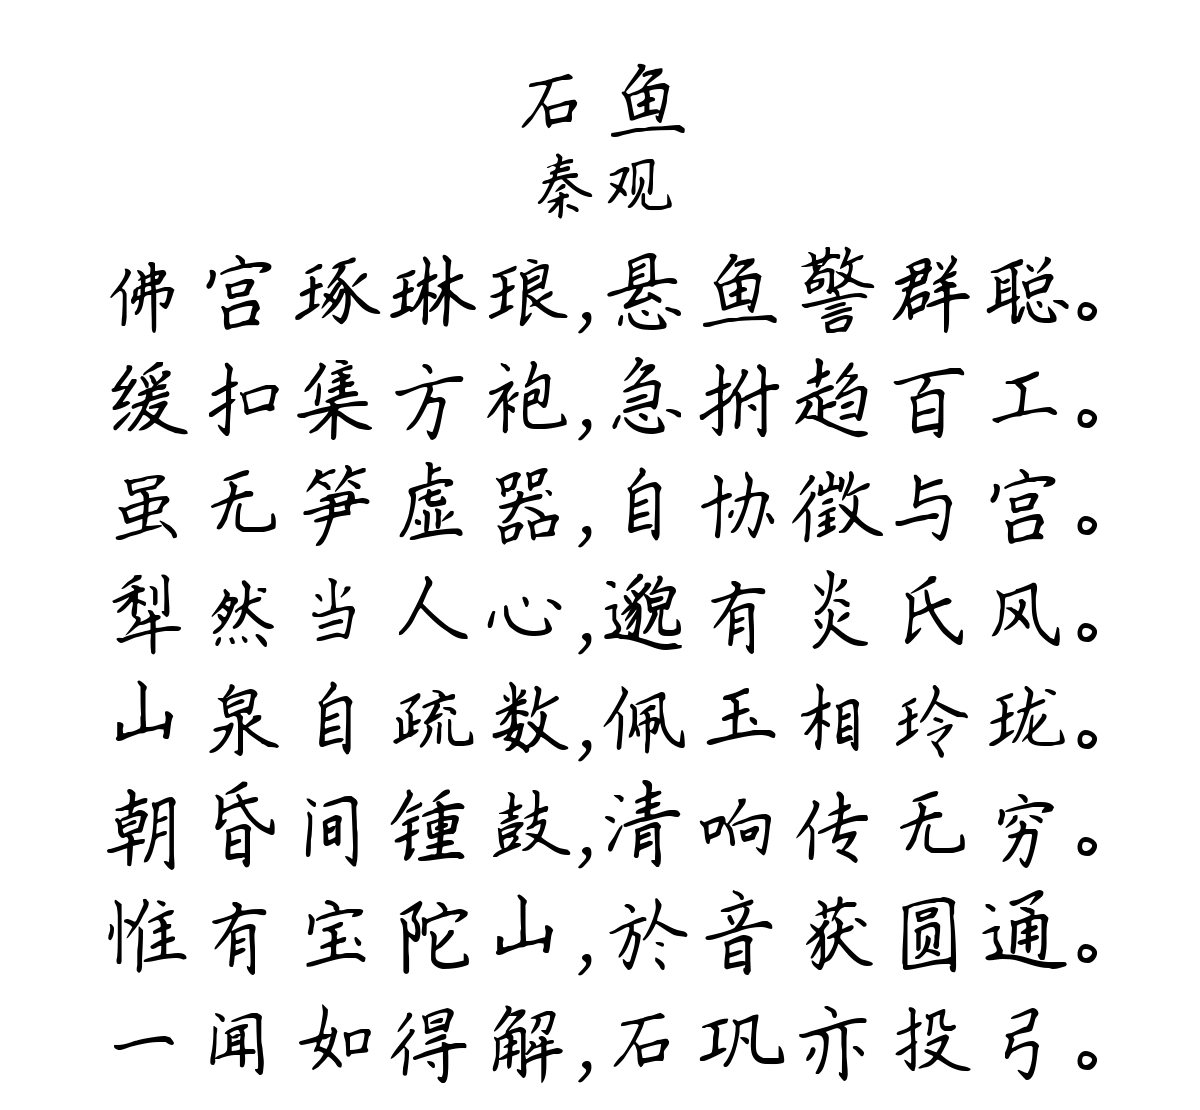 石鱼
秦观
佛宫琢琳琅,悬鱼警群聪。
缓扣集方袍,急拊趋百工。
虽无笋虚器,自协徵与宫。
犁然当人心,邈有炎氏风。
山泉自疏数,佩玉相玲珑。
朝昏间锺鼓,清响传无穷。
惟有宝陀山,於音获圆通。
一闻如得解,石巩亦投弓。